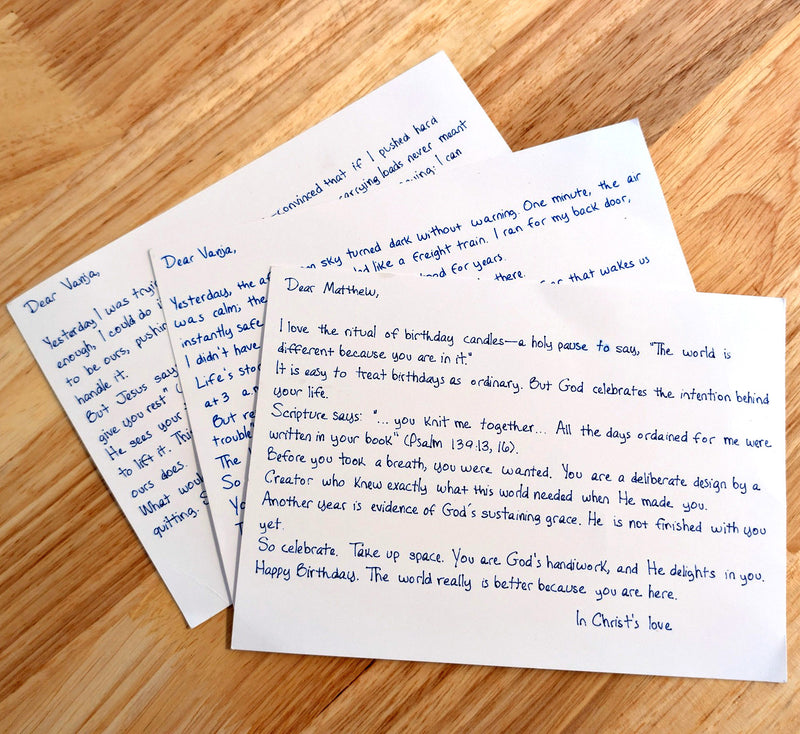 Dear Vanja,
Yesterday I was tryi
convinced that if I pushed hard
enough, I could do i
carrying loads never meant
to be ours, pushin
I can
handle it.
But Jesus say
give you rest" (
He sees your
to lift it. Thi
ours does.
What woul
quitting. S
Dear Vanja,
Yesterday, the af
sky turned dark without warning. One minute, the air
was calm; the
like a freight train. I ran for my back door,
instantly safe
for years.
I didn't have
there.
Life's stor
that wakes us
at 3 a.m
But re
trouble"
The
So
Yo
Dear Matthew,
I love the ritual of birthday candles—a holy pause to say, "The world is
different because you are in it."
It is easy to treat birthdays as ordinary. But God celebrates the intention behind
your life.
Scripture says: "... you knit me together... All the days ordained for me were
written in your book" (Psalm 139:13, 16).
Before you took a breath, you were wanted. You are a deliberate design by a
Creator who knew exactly what this world needed when He made you.
Another year is evidence of God's sustaining grace. He is not finished with you
yet.
So celebrate. Take up space. You are God's handiwork, and He delights in you.
Happy Birthday. The world really is better because you are here.
In Christ's love